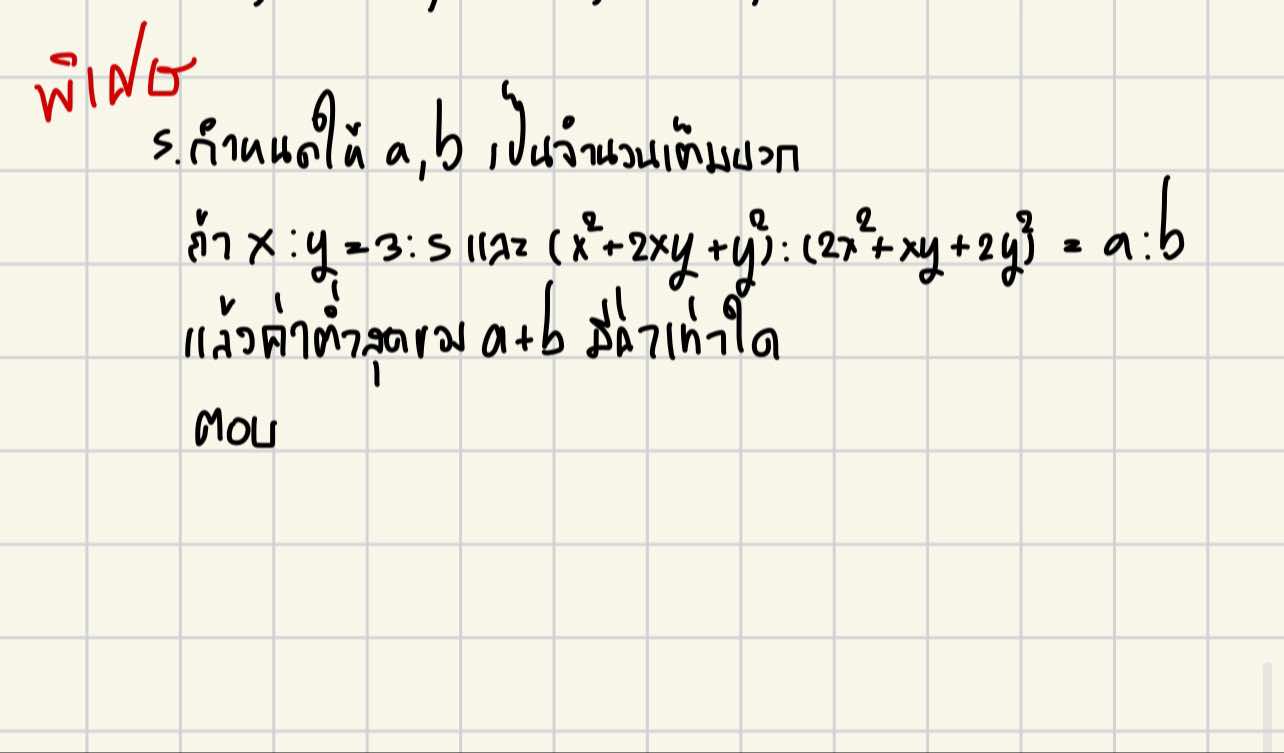 พิเศษ
5. กำหนดให้ a, b เป็นจำนวนเต็มบวก
ถ้า x : y = 3 : 5 และ (x² + 2xy + y²) : (2x² + xy + 2y²) = a : b
แล้วค่าต่ำสุดของ a + b มีค่าเท่าใด
ตอบ